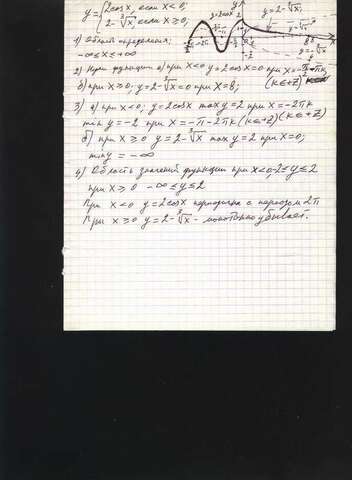 y = { 2cos x, если x < 0,
2 - ∛x, если x ≥ 0,
y = 2cos x
y = 2 - ∛x
1) Область определения;
-∞ ≤ x ≤ +∞
2) Нули функции а) при x < 0 y = 2cos x = 0 при x = -π/2 - πk,
б) при x ≥ 0; y = 2 - ∛x = 0 при x = 8; (k ∈ +Z)
3) а) при x < 0; y = 2cos x max y = 2 при x = -2πk
min y = -2 при x = -π - 2πk (k ∈ +Z) (k ∈ +Z)
б) при x ≥ 0 y = 2 - ∛x max y = 2 при x = 0;
min y = -∞
4) Область значений функции при x < 0 -2 ≤ y ≤ 2
при x ≥ 0 -∞ ≤ y ≤ 2
При x < 0 y = 2cos x периодична с периодом 2π
При x ≥ 0 y = 2 - ∛x - монотонно убывает.